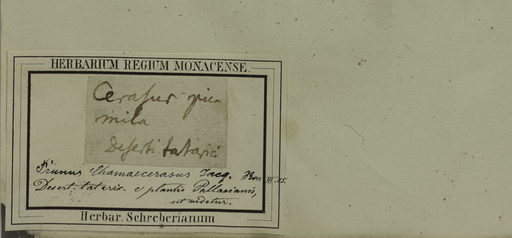 HERBARIUM REGIUM MONACENSE.
Cerasus pu
mila
Deserti tatarici
Prunus Chamaecerasus Jacq.
Desert. tataric. e plantis Pallasianis,
ut videtur.
Herbar. Schreberianum